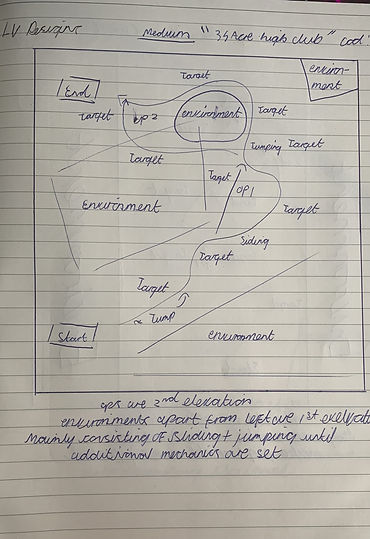 LV Designing
Medium "34 Acre high club" cod:
environ-
ment
Target
End
Target
OP2
environment
Target
Jumping Target
Target
Target
OP1
Environment
Target
Sliding
Target
Target
Jump
Start
environment
ops are 2nd elevation
environments apart from left are 1st
Mainly consisting of sliding + jumping until
additional mechanics are set